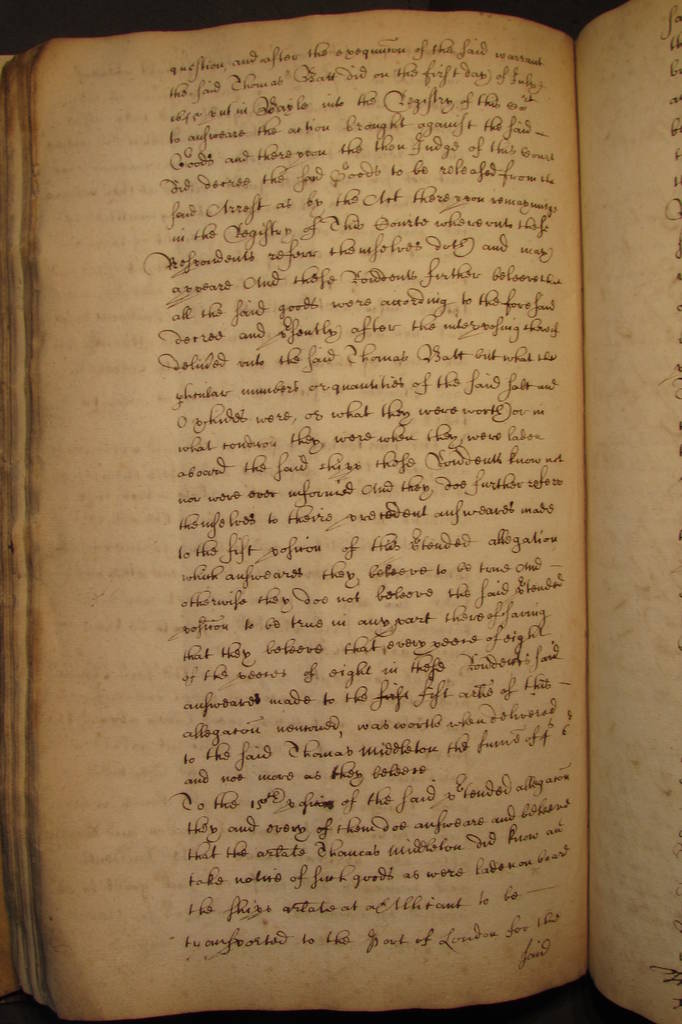 question, and after the exequucon of the said warrant
the said Thomas Batt did on the first day of July
1655 put in Bayle into the Registry of this Co:rt
to answeare the action brought against the said -
Goods and thereupon the then Judge of this Court
did decree the said Goods to be released from the
said Arrest as by the Act thereupon remayning
in the Registry of this Courte whereunto these
Respondents referr themselves doth and may
appeare And these Rondents further beleeve that
all the said goods were according to the foresaid
decree and psently after the interposing thereof
delivred unto the said Thomas Batt but what the
pticular numbers or quantities of the said salt and
Oxhides were, or what they were worth or in
what condicon they were when they were laden
aboard the said shipp these Rondents know not
nor were ever informed And they doe further referr
themselves to theire precedent answeares made
to the first posicon of this ptended allegation
which answeares they beleeve to be true And -
otherwise they doe not beleeve the said ptended
posicon to be true in any part thereof saving
that they beleeve that every peece of eight
of the peeces of eight in these Rondents said
answeares made to the first artle of this -
allegacon menconed, was worth when delivered
to the said Thomas Middleton the summe of 4s 6
and noe more as they beleeve
To the 15th posicon of the said ptended allegacon
they and every of them doe answeare and beleeve
that the artate Thomas Middleton did know and
take notice of such goods as were laden on board
the shipp artate at Allicant to be -
transported to the Port of London for the
said